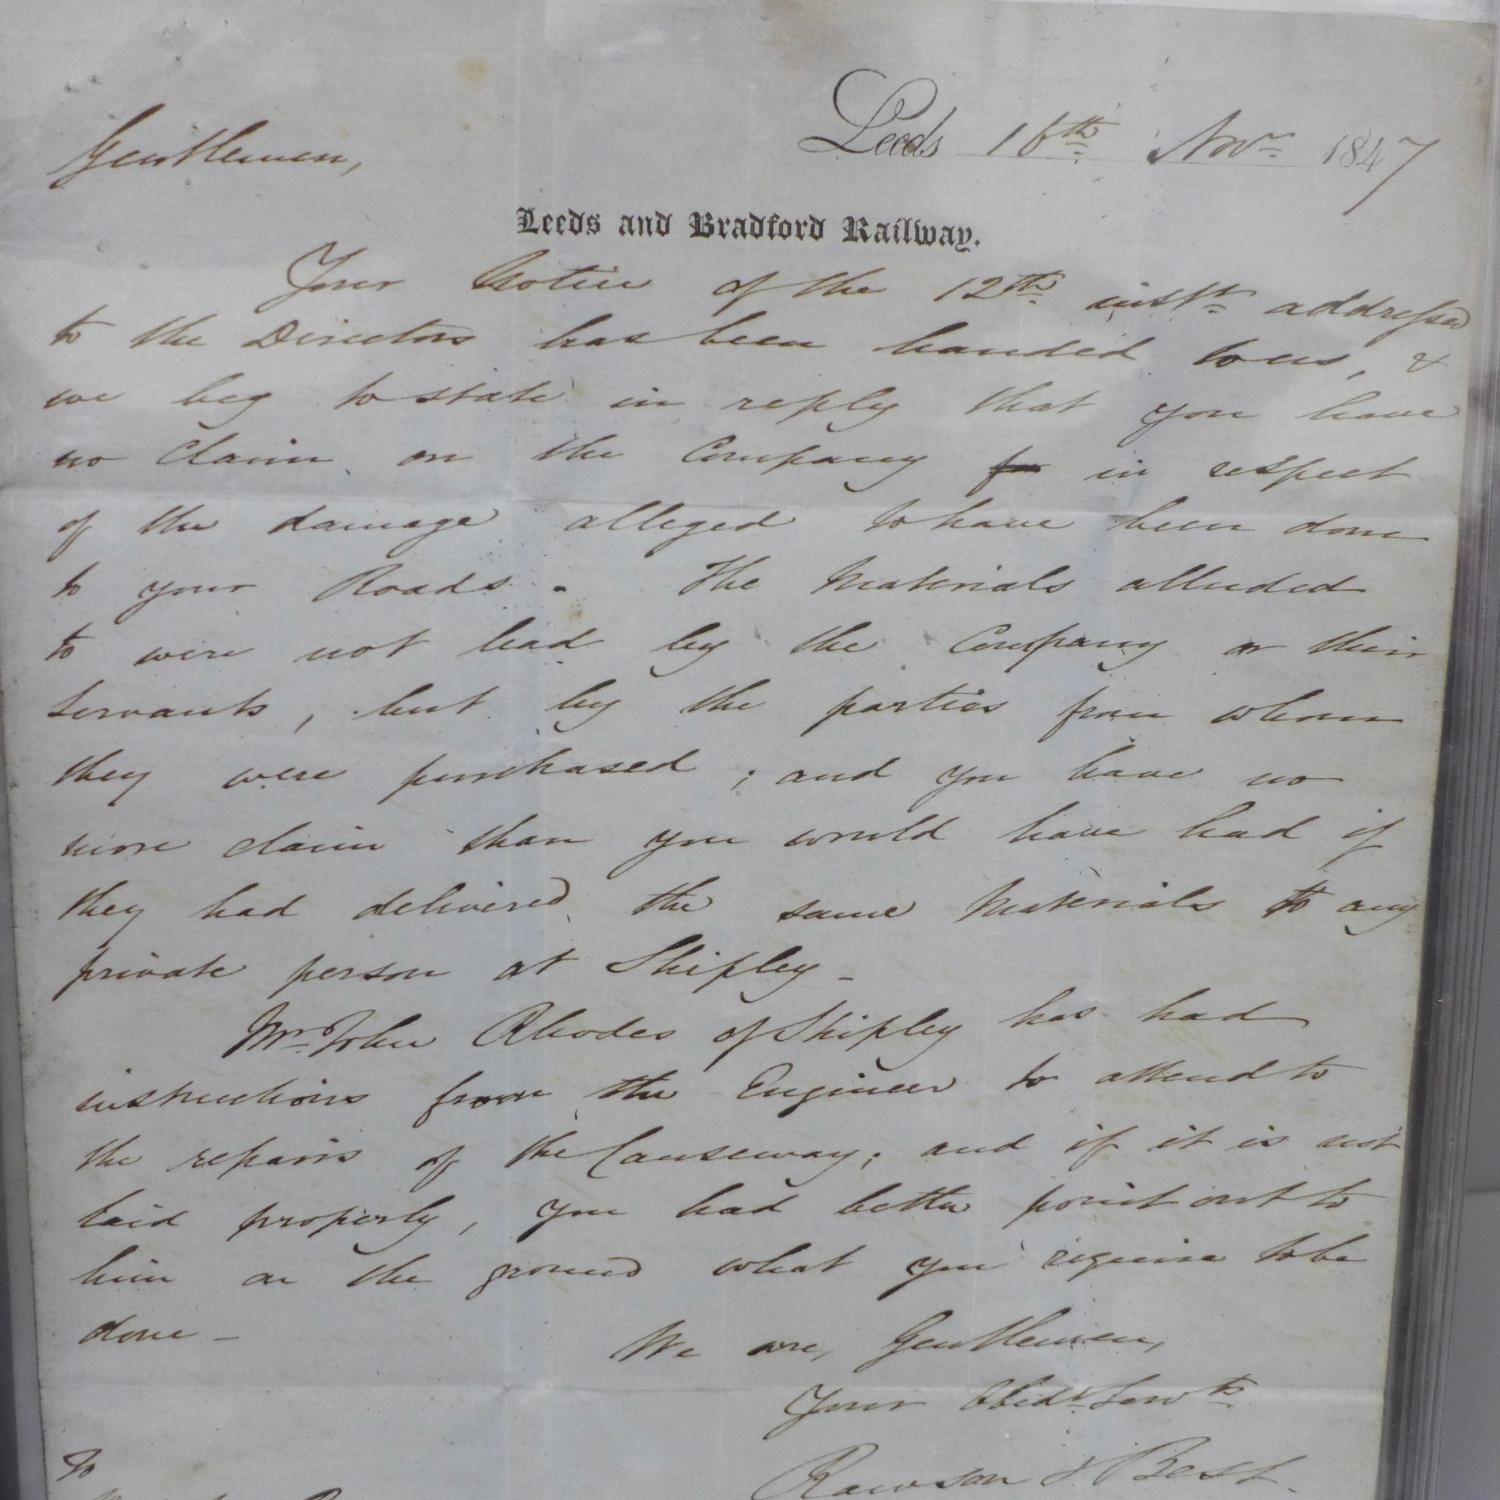 Leeds 16th Novr 1847
Gentlemen,
Leeds and Bradford Railway.
Your Notice of the 12th instt addressed
to the Directors has been handed to us, &
we beg to state in reply that you have
no Claim on the Company for in respect
of the damage alleged to have been done
to your Roads. The Materials alluded
to were not lead by the Company or their
Servants, but by the parties from whom
they were purchased; and you have no
more claim than you would have had if
they had delivered the same Materials to any
private person at Shipley -
Mr John Rhodes of Shipley has had
instructions from the Engineer to attend to
the repairs of the Causeway; and if it is not
laid properly, you had better point out to
him on the ground what you require to be
done -
We are, Gentlemen,
Your Obedt Servts
Rawson & Best.
To